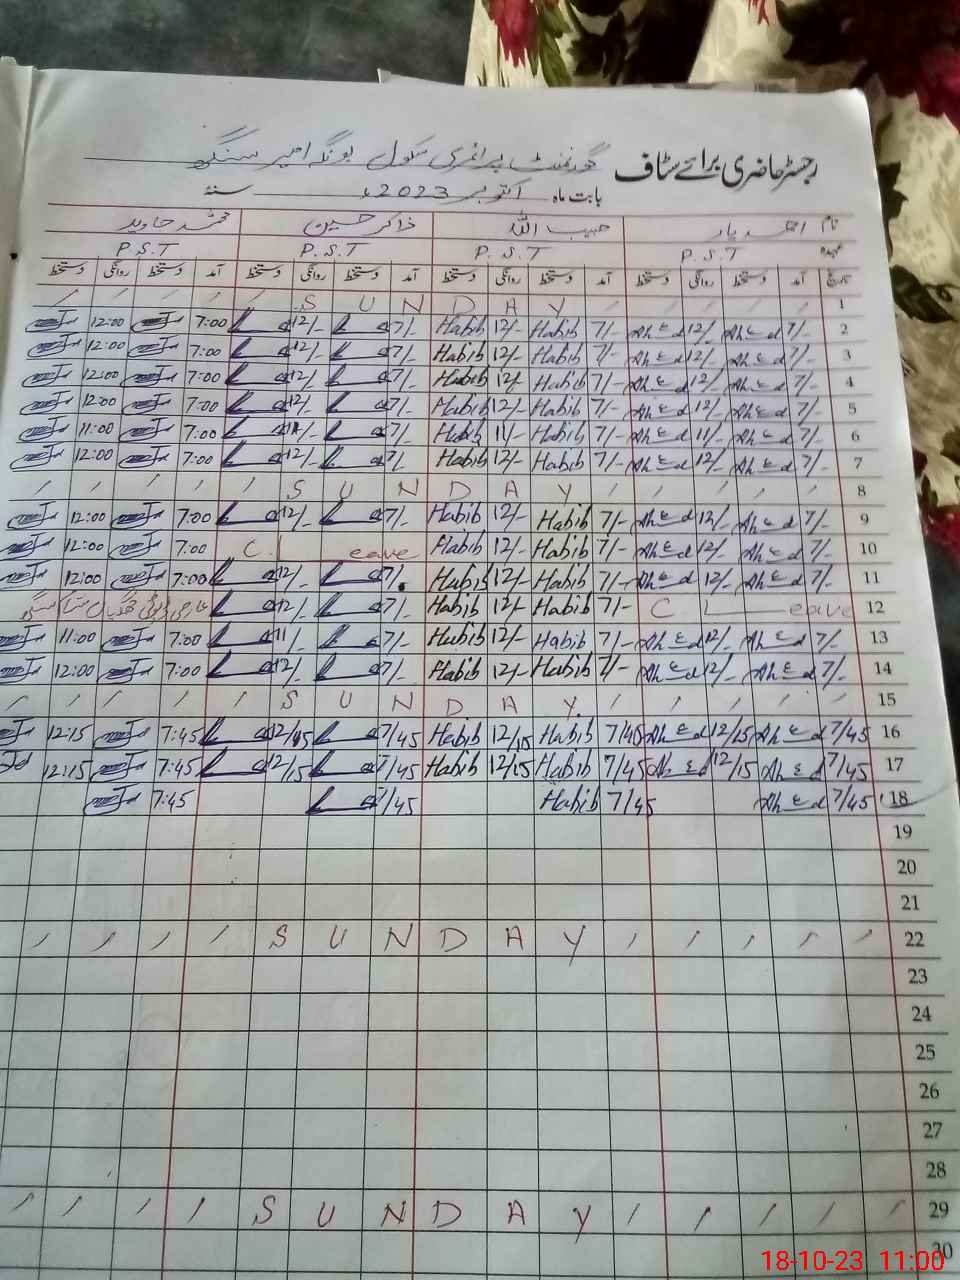 رجسٹر حاضری برائے سٹاف گورنمنٹ پرائمری سکول بونگہ امیر سنگھ
بابت ماہ اکتوبر 2023ء سنۂ
نام احمد یار حبیب اللہ ذاکر حسین محمد جاوید
عہدہ P.S.T P.S.T P.S.T P.S.T
تاریخ آمد دستخط روانگی دستخط آمد دستخط روانگی دستخط آمد دستخط روانگی دستخط آمد دستخط روانگی دستخط
1 S U N D A Y
2 7/- Ahmed 12/- Ahmed 7/- Habib 12/- Habib 7/- 12/- 7:00 12:00
3 7/- Ahmed 12/- Ahmed 7/- Habib 12/- Habib 7/- 12/- 7:00 12:00
4 7/- Ahmed 12/- Ahmed 7/- Habib 12/- Habib 7/- 12/- 7:00 12:00
5 7/- Ahmed 12/- Ahmed 7/- Habib 12/- Habib 7/- 12/- 7:00 12:00
6 7/- Ahmed 11/- Ahmed 7/- Habib 11/- Habib 7/- 11/- 7:00 11:00
7 7/- Ahmed 12/- Ahmed 7/- Habib 12/- Habib 7/- 12/- 7:00 12:00
8 S U N D A Y
9 7/- Ahmed 12/- Ahmed 7/- Habib 12/- Habib 7/- 12/- 7:00 12:00
10 7/- Ahmed 12/- Ahmed 7/- Habib 12/- Habib C.Leave 7:00 12:00
11 7/- Ahmed 12/- Ahmed 7/- Habib 12/- Habib 7/- 12/- 7:00 12:00
12 C.Leave 7/- Habib 12/- Habib 7/- 12/- عارضی ڈیوٹی
13 7/- Ahmed 12/- Ahmed 7/- Habib 12/- Habib 7/- 11/- 7:00 11:00
14 7/- Ahmed 12/- Ahmed 7/- Habib 12/- Habib 7/- 12/- 7:00 12:00
15 S U N D A Y
16 7/45 Ahmed 12/15 Ahmed 7/45 Habib 12/15 Habib 7/45 12/15 7:45 12:15
17 7/45 Ahmed 12/15 Ahmed 7/45 Habib 12/15 Habib 7/45 12/15 7:45 12:15
18 7/45 Ahmed 7/45 Habib 7/45 7:45
19
20
21
22 S U N D A Y
23
24
25
26
27
28
29 S U N D A Y
30
18-10-23 11:00